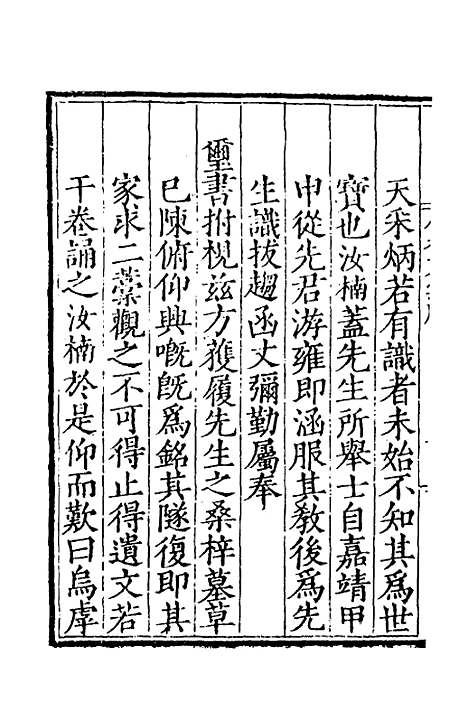 天采炳若有識者未始不知其爲世
寶也汝楠蓋先生所舉士自嘉靖甲
申從先君游雍即涵服其敎後爲先
生識拔趨函丈彌勤屬奉
璽書拊梘兹方獲履先生之桑梓墓草
已陳俯仰興嘅旣爲銘其隧復即其
家求二藁觀之不可得止得遺文若
干卷誦之汝楠於是仰而歎曰烏虖